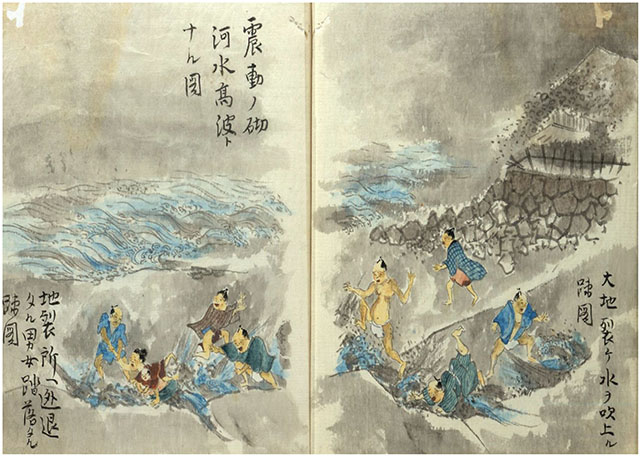 大地裂ケ水ヲ吹上ル
図
震動ノ砌
河水髙波ト
ナル図
地裂所ヘ逃退
タル男女踏落タル
図